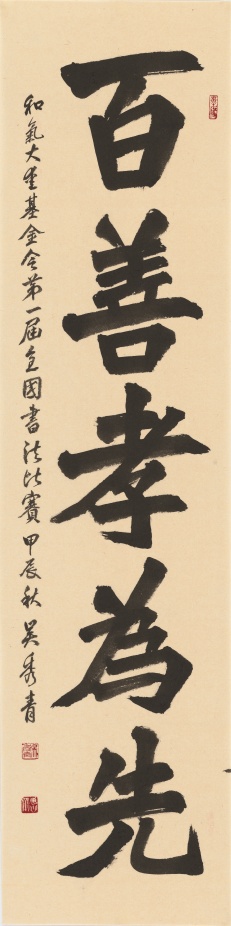 百善孝為先
和氣大愛基金会第一屆全國書法比賽甲辰秋吳秀青